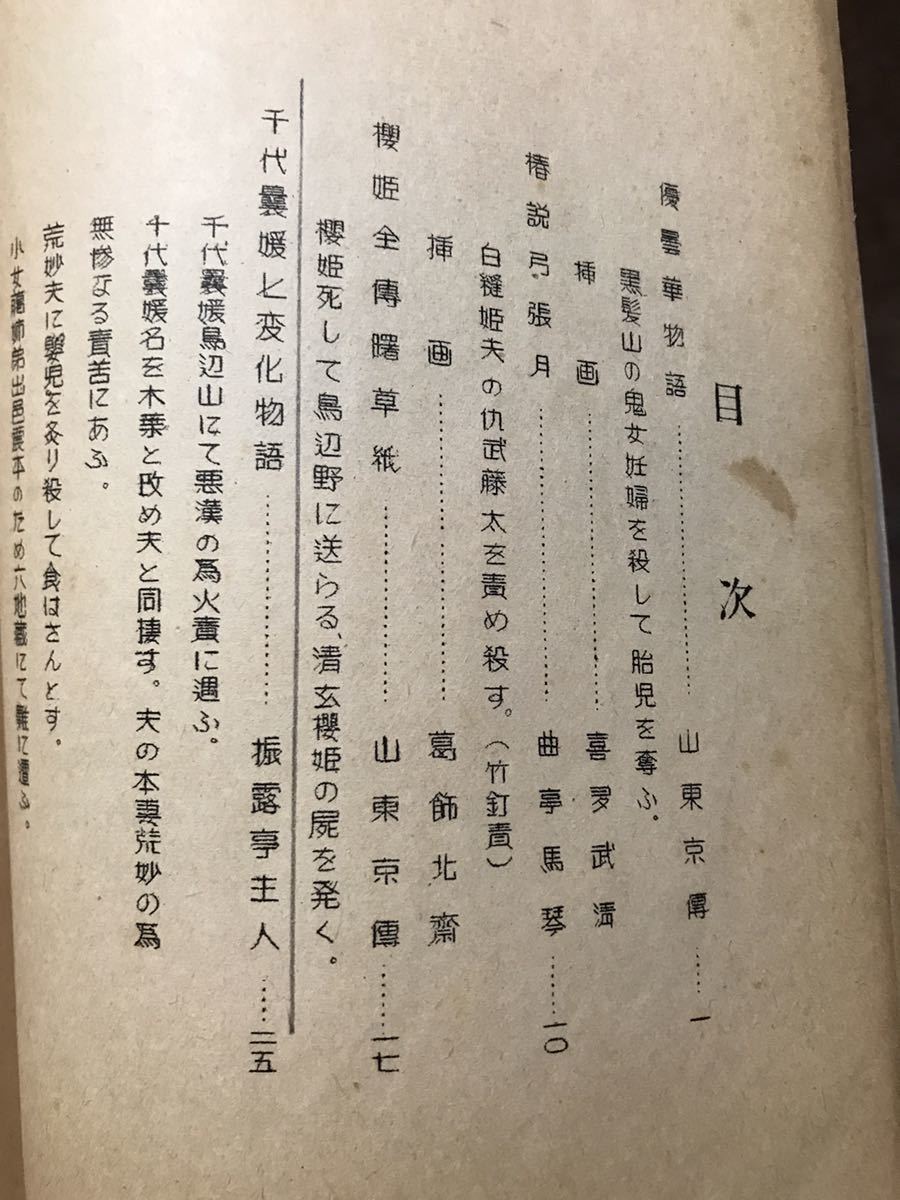 目次
優曇華物語……………………山東京傳……一
黒髪山の鬼女妊婦を殺して胎児を奪ふ。
挿画……………………喜多武清
椿説弓張月……………………曲亭馬琴……一〇
白縫姫夫の仇武藤太を責め殺す。(竹釘責)
挿画……………………葛飾北齋
櫻姫全傳曙草紙……………山東京傳……一七
櫻姫死して鳥辺野に送らる、清玄櫻姫の屍を発く。
千代曩媛七変化物語……………振露亭主人……二五
千代曩媛鳥辺山にて悪漢の爲火責に遇ふ。
千代曩媛名を木葉と改め夫と同棲す。夫の本妻荒妙の爲
無惨なる責苦にあふ。
荒妙夫に嬰児を炙り殺して食はさんとす。
小女 姉弟出邑震本のため六地蔵にて難に遭ふ。